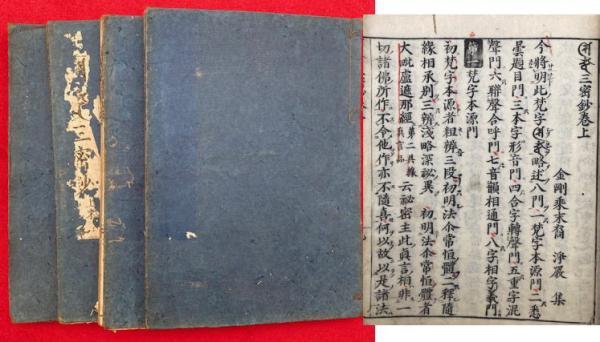 三密鈔
三密鈔卷上
金剛乘末裔 淨嚴 集
今將明此梵字略述八門一梵字本源門二悉
曇題目門三本字形音門四合字轉聲門五重字混
聲門六聯聲合呼門七音韻相通門八字相字義門
第一梵字本源門
初梵字本源者粗辨三段初明法尒常恒體二釋隨
緣相承別三辨淺略深祕異 初明法尒常恒體者
大毗盧遮那經第二具緣真言品云祕密主此眞言相非一
切諸佛所作不令他作亦不隨喜何以故以是諸法